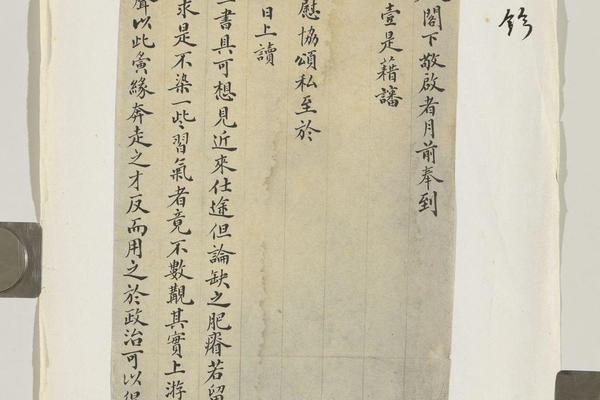 鈐
閣下敬啟者月前奉到
壹是藉讅
慰協頌私至於
日上讀
書具可想見近來仕途但論缺之肥瘠若留
求是不染一些習氣者竟不數覯其實上游
以此夤緣奔走之才反而用之於政治可以